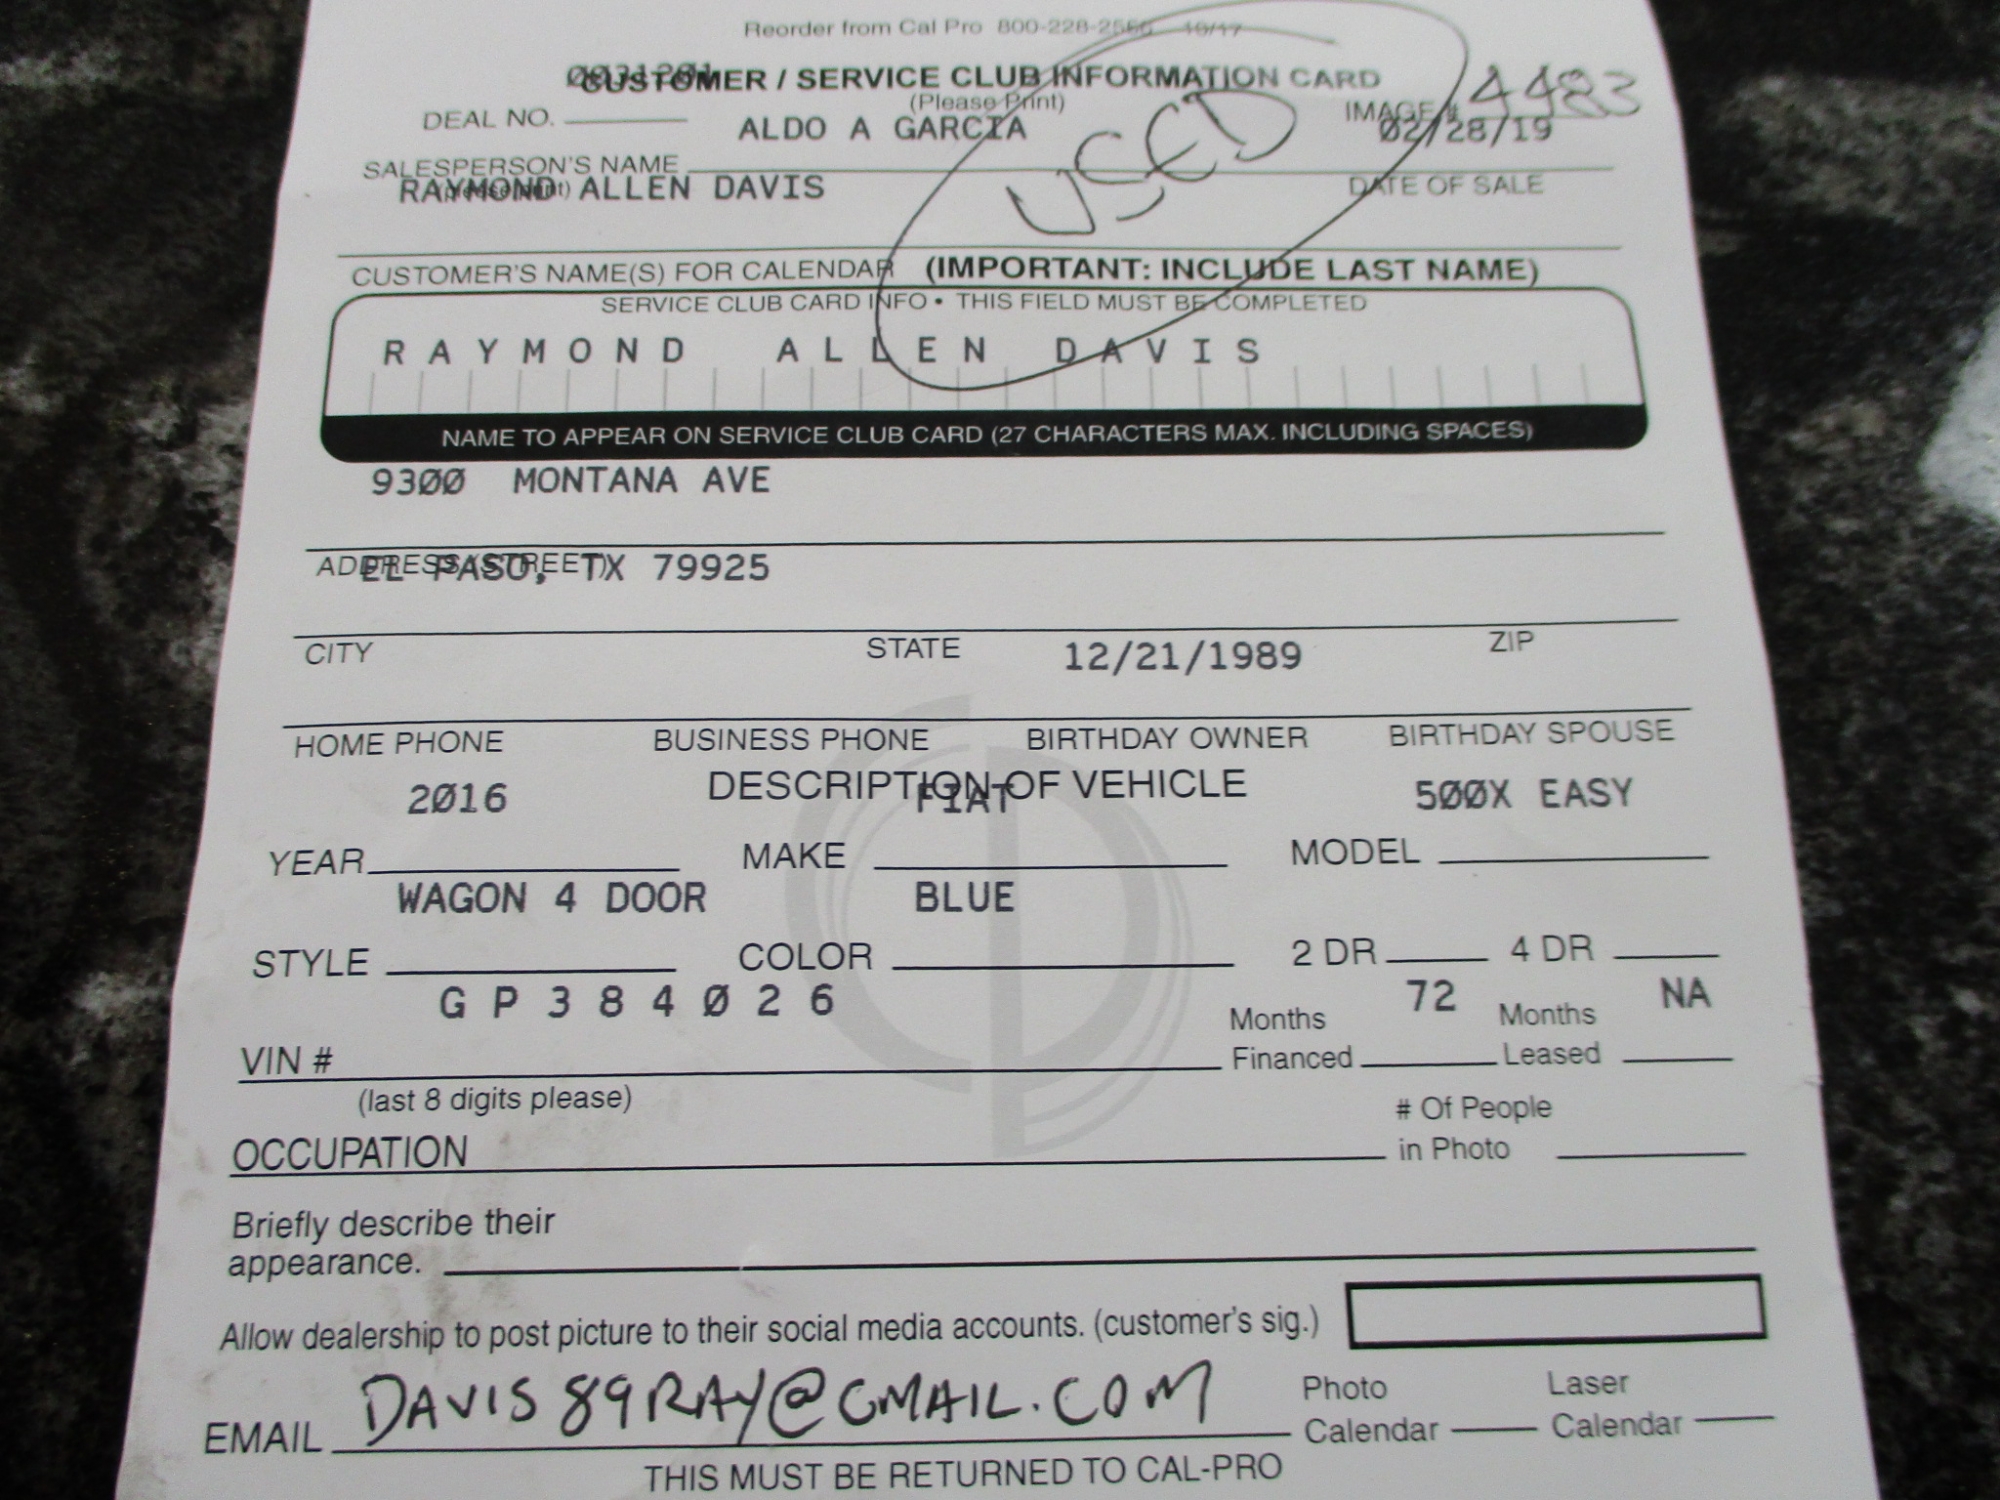 Reorder from Cal Pro 800-228-2556 10/17
CUSTOMER / SERVICE CLUB INFORMATION CARD
(Please Print)
DEAL NO.
ALDO A GARCIA
IMAGE # 4483
02/28/19
USED
SALESPERSON'S NAME
RAYMOND ALLEN DAVIS
DATE OF SALE
CUSTOMER'S NAME(S) FOR CALENDAR (IMPORTANT: INCLUDE LAST NAME)
SERVICE CLUB CARD INFO • THIS FIELD MUST BE COMPLETED
RAYMOND ALLEN DAVIS
NAME TO APPEAR ON SERVICE CLUB CARD (27 CHARACTERS MAX. INCLUDING SPACES)
9300 MONTANA AVE
ADDRESS (STREET)
EL PASO, TX 79925
CITY STATE ZIP
12/21/1989
HOME PHONE BUSINESS PHONE BIRTHDAY OWNER BIRTHDAY SPOUSE
DESCRIPTION OF VEHICLE
2016 FIAT 500X EASY
YEAR MAKE MODEL
WAGON 4 DOOR BLUE
STYLE COLOR 2 DR 4 DR
GP384026
Months Financed 72 Months Leased NA
VIN #
(last 8 digits please)
OCCUPATION
# Of People in Photo
Briefly describe their
appearance.
Allow dealership to post picture to their social media accounts. (customer's sig.)
EMAIL DAVIS89RAY@GMAIL.COM
Photo Calendar Laser Calendar
THIS MUST BE RETURNED TO CAL-PRO